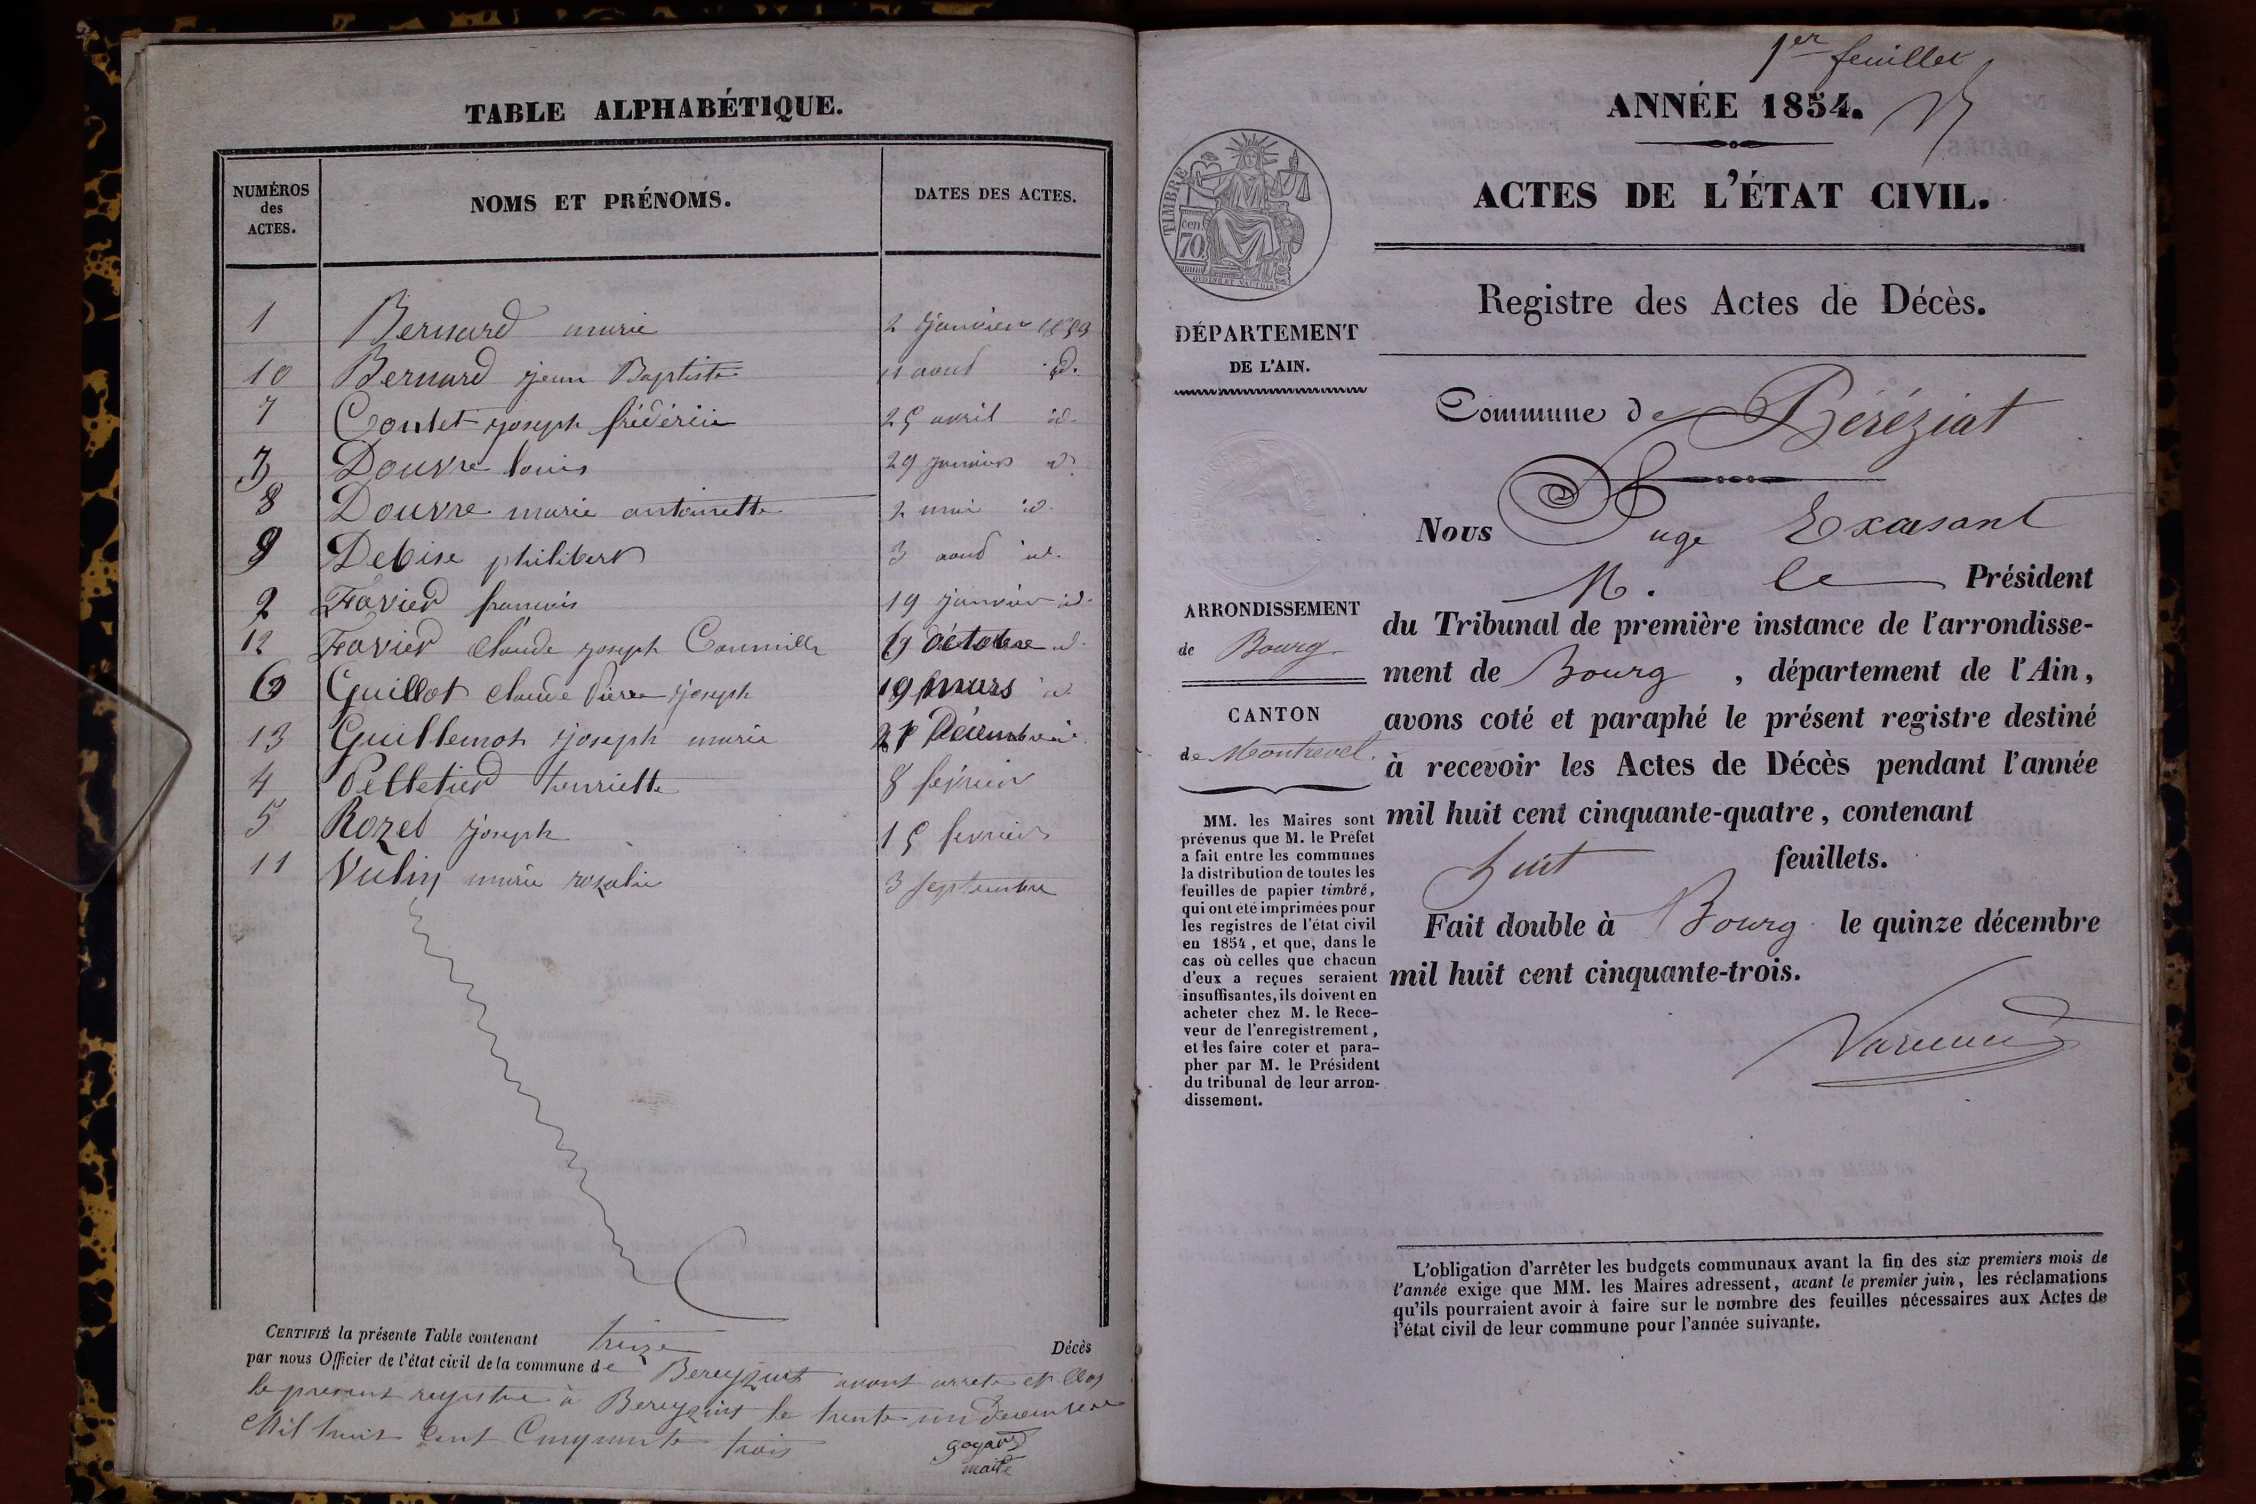 TABLE ALPHABÉTIQUE.
NUMÉROS des ACTES. NOMS ET PRÉNOMS. DATES DES ACTES.
1 Bernard marie 2 janvier 1853
10 Bernard jean Baptiste 11 aout id.
7 Contet joseph frédéric 25 avril id.
3 Douvre louis 29 janvier id.
8 Douvre marie antoinette 2 mai id.
9 Debise philibert 3 aout id.
2 Favier francois 19 janvier id.
12 Favier claude joseph 19 octobre id.
6 Guillot claude Pierre joseph 19 mars id.
13 Guillemot joseph marie 21 Décembre
4 Pelletier henriette 8 février
5 Rozet joseph 15 fevrier
11 Vulin marie rosalie 3 septembre
CERTIFIÉ la présente Table contenant treize Décès
par nous Officier de l'état civil de la commune de Bereyziat avons arrete et clos
le present registre à Bereyziat le trente un decembre
Mil huit Cent Cinquante trois
goyard
maire
1er feuillet
ANNÉE 1854.
ACTES DE L'ÉTAT CIVIL.
Registre des Actes de Décès.
TIMBRE
cen. 70
DÉPARTEMENT
DE L'AIN.
Commune de Béréziat
Nous Juge Exerçant
M. le Président
du Tribunal de première instance de l'arrondisse-
ment de Bourg, département de l'Ain,
avons coté et paraphé le présent registre destiné
à recevoir les Actes de Décès pendant l'année
mil huit cent cinquante-quatre, contenant
huit feuillets.
Fait double à Bourg le quinze décembre
mil huit cent cinquante-trois.
ARRONDISSEMENT
de Bourg
CANTON
de Montrevel.
MM. les Maires sont
prévenus que M. le Préfet
a fait entre les communes
la distribution de toutes les
feuilles de papier timbré,
qui ont été imprimées pour
les registres de l'état civil
en 1854, et que, dans le
cas où celles que chacun
d'eux a reçues seraient
insuffisantes, ils doivent en
acheter chez M. le Rece-
veur de l'enregistrement,
et les faire coter et para-
pher par M. le Président
du tribunal de leur arron-
dissement.
L'obligation d'arrêter les budgets communaux avant la fin des six premiers mois de
l'année exige que MM. les Maires adressent, avant le premier juin, les réclamations
qu'ils pourraient avoir à faire sur le nombre des feuilles nécessaires aux Actes de
l'état civil de leur commune pour l'année suivante.